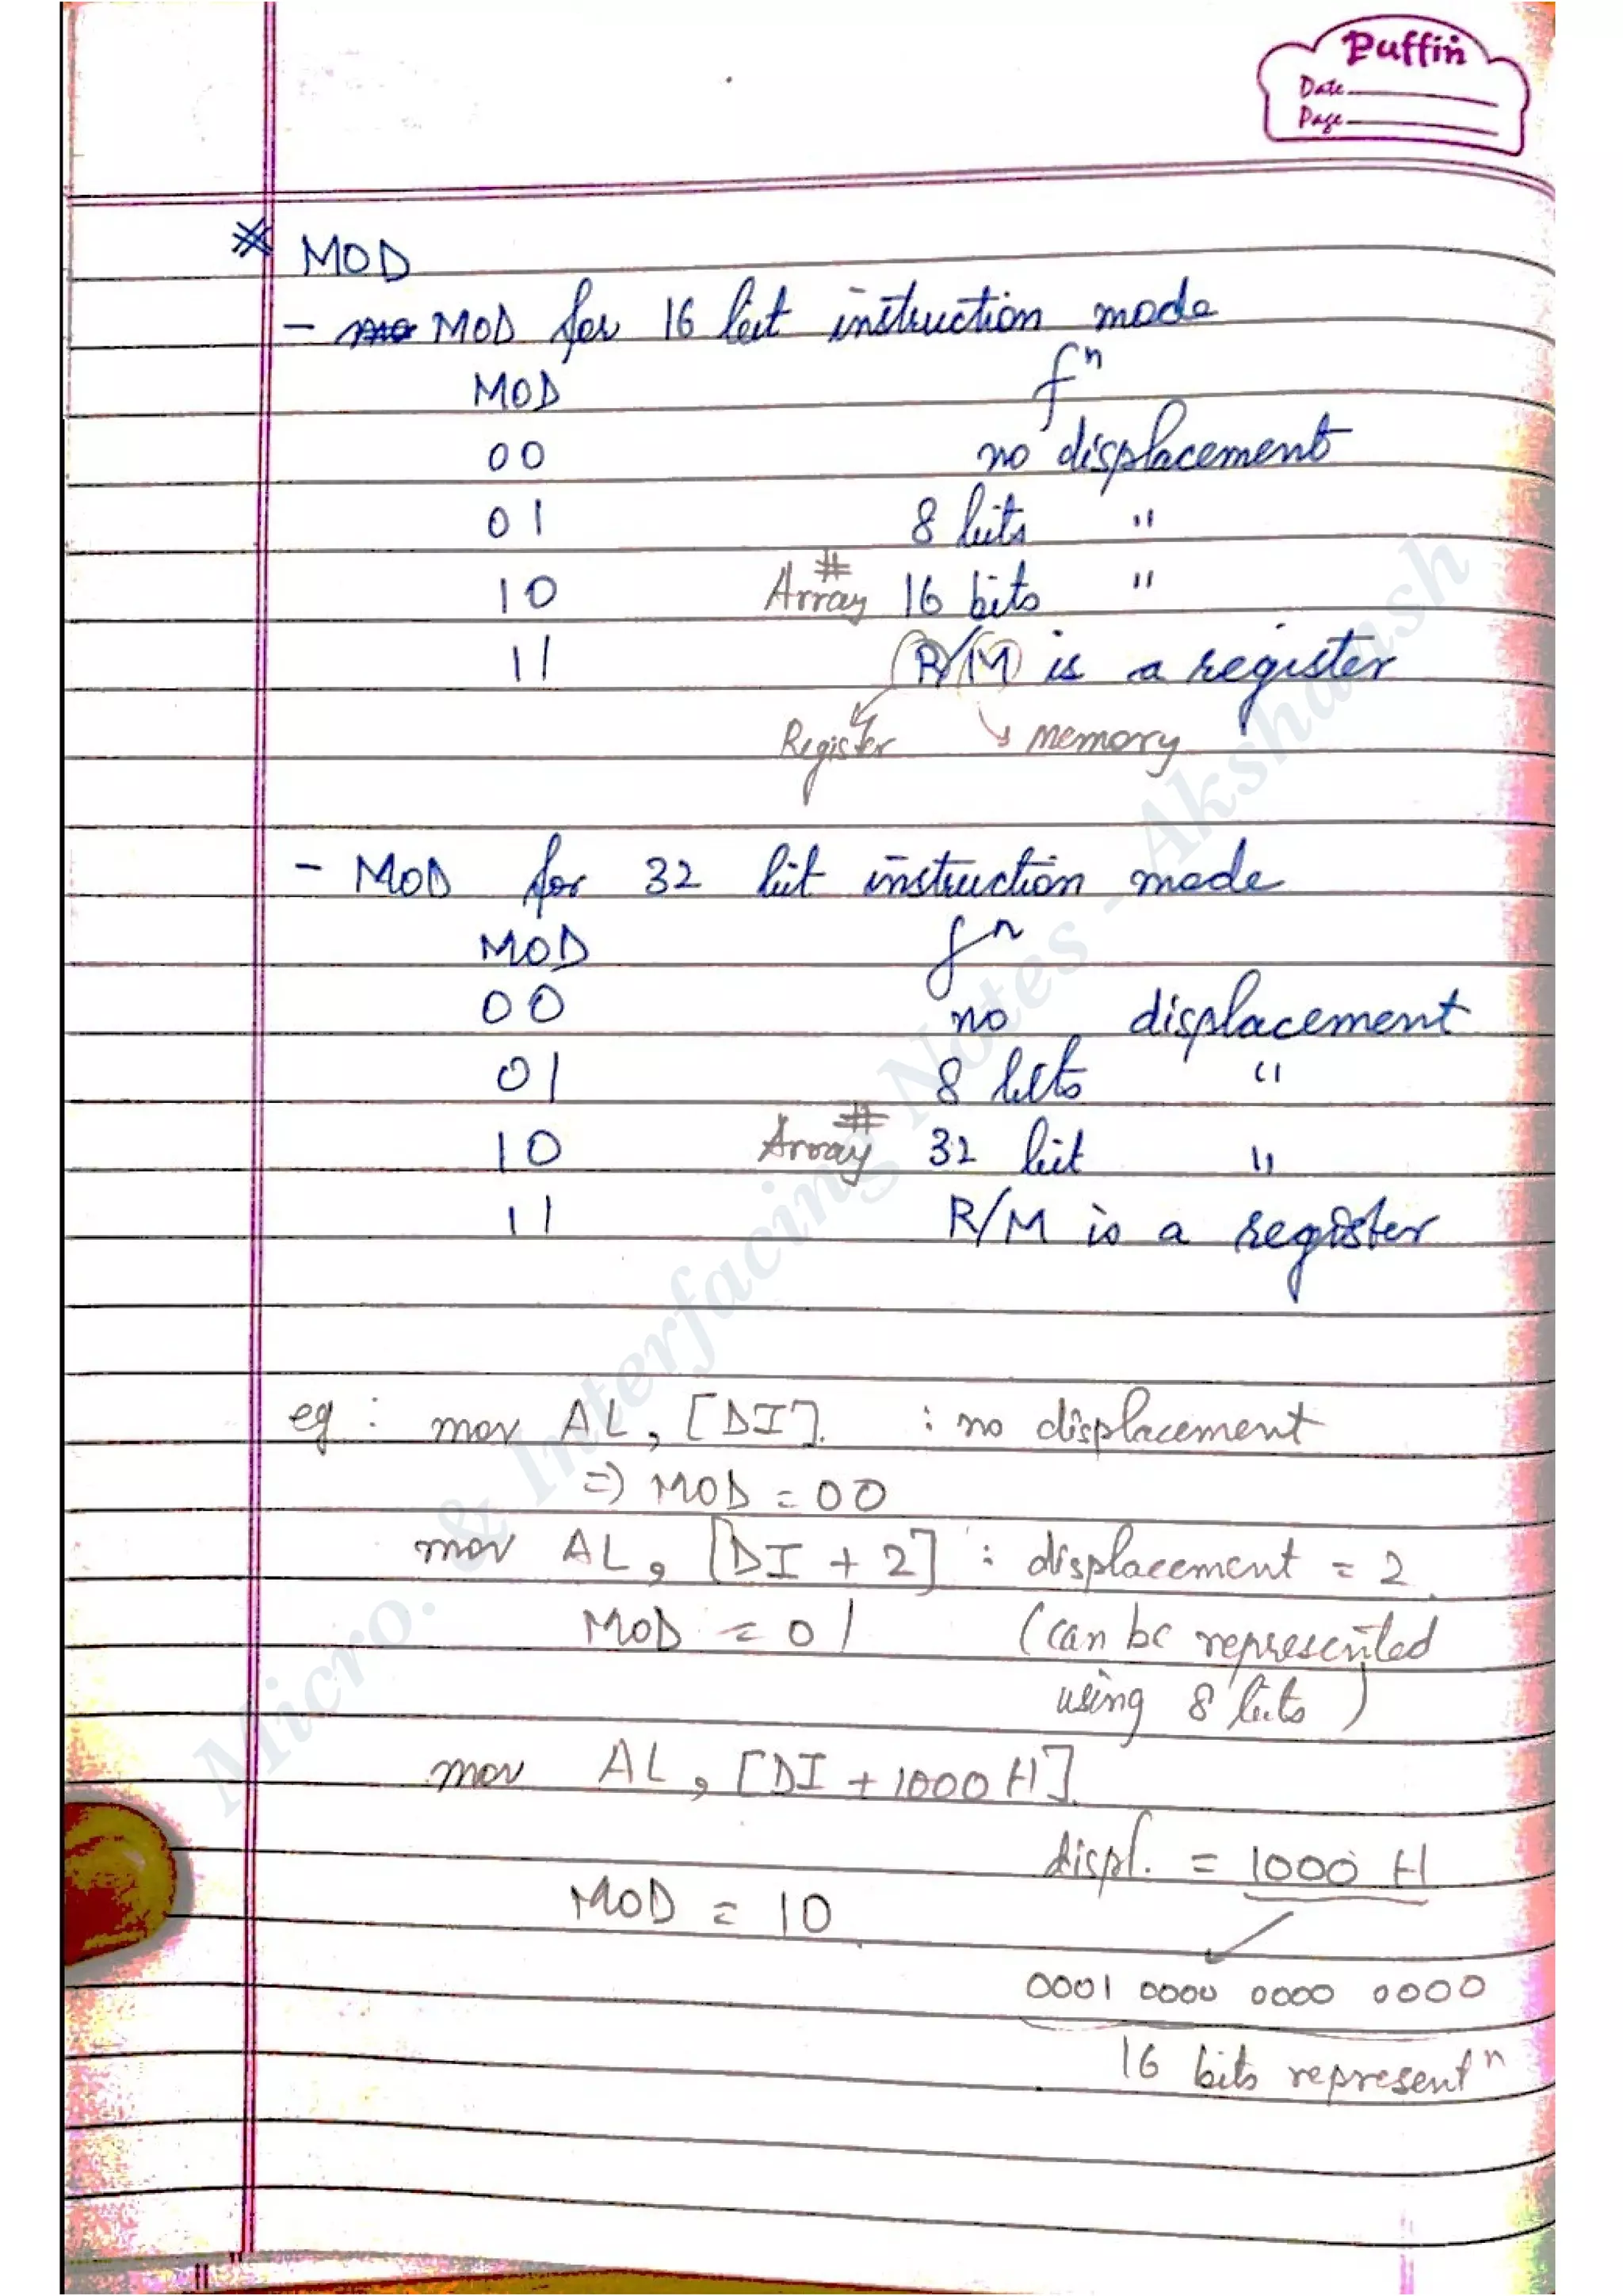 Puffin
Date
Page
* MOD
- MOD for 16 bit instruction mode
MOD fⁿ
00 no displacement
01 8 bits "
#
10 Array 16 bits "
11 R/M is a register
Register Memory
- MOD for 32 bit instruction mode
MOD fⁿ
00 no displacement
01 8 bits "
#
10 Array 32 bit "
11 R/M is a register
eg : mov AL, [DI]. : no displacement
=> MOD = 00
mov AL, [DI + 2] : displacement = 2.
MOD = 01 (can be represented
using 8 bits)
mov AL, [DI + 1000 H].
displ. = 1000 H
MOD = 10
0001 0000 0000 0000
16 bits representⁿ
Micro. & Interfacing Notes - Akshansh